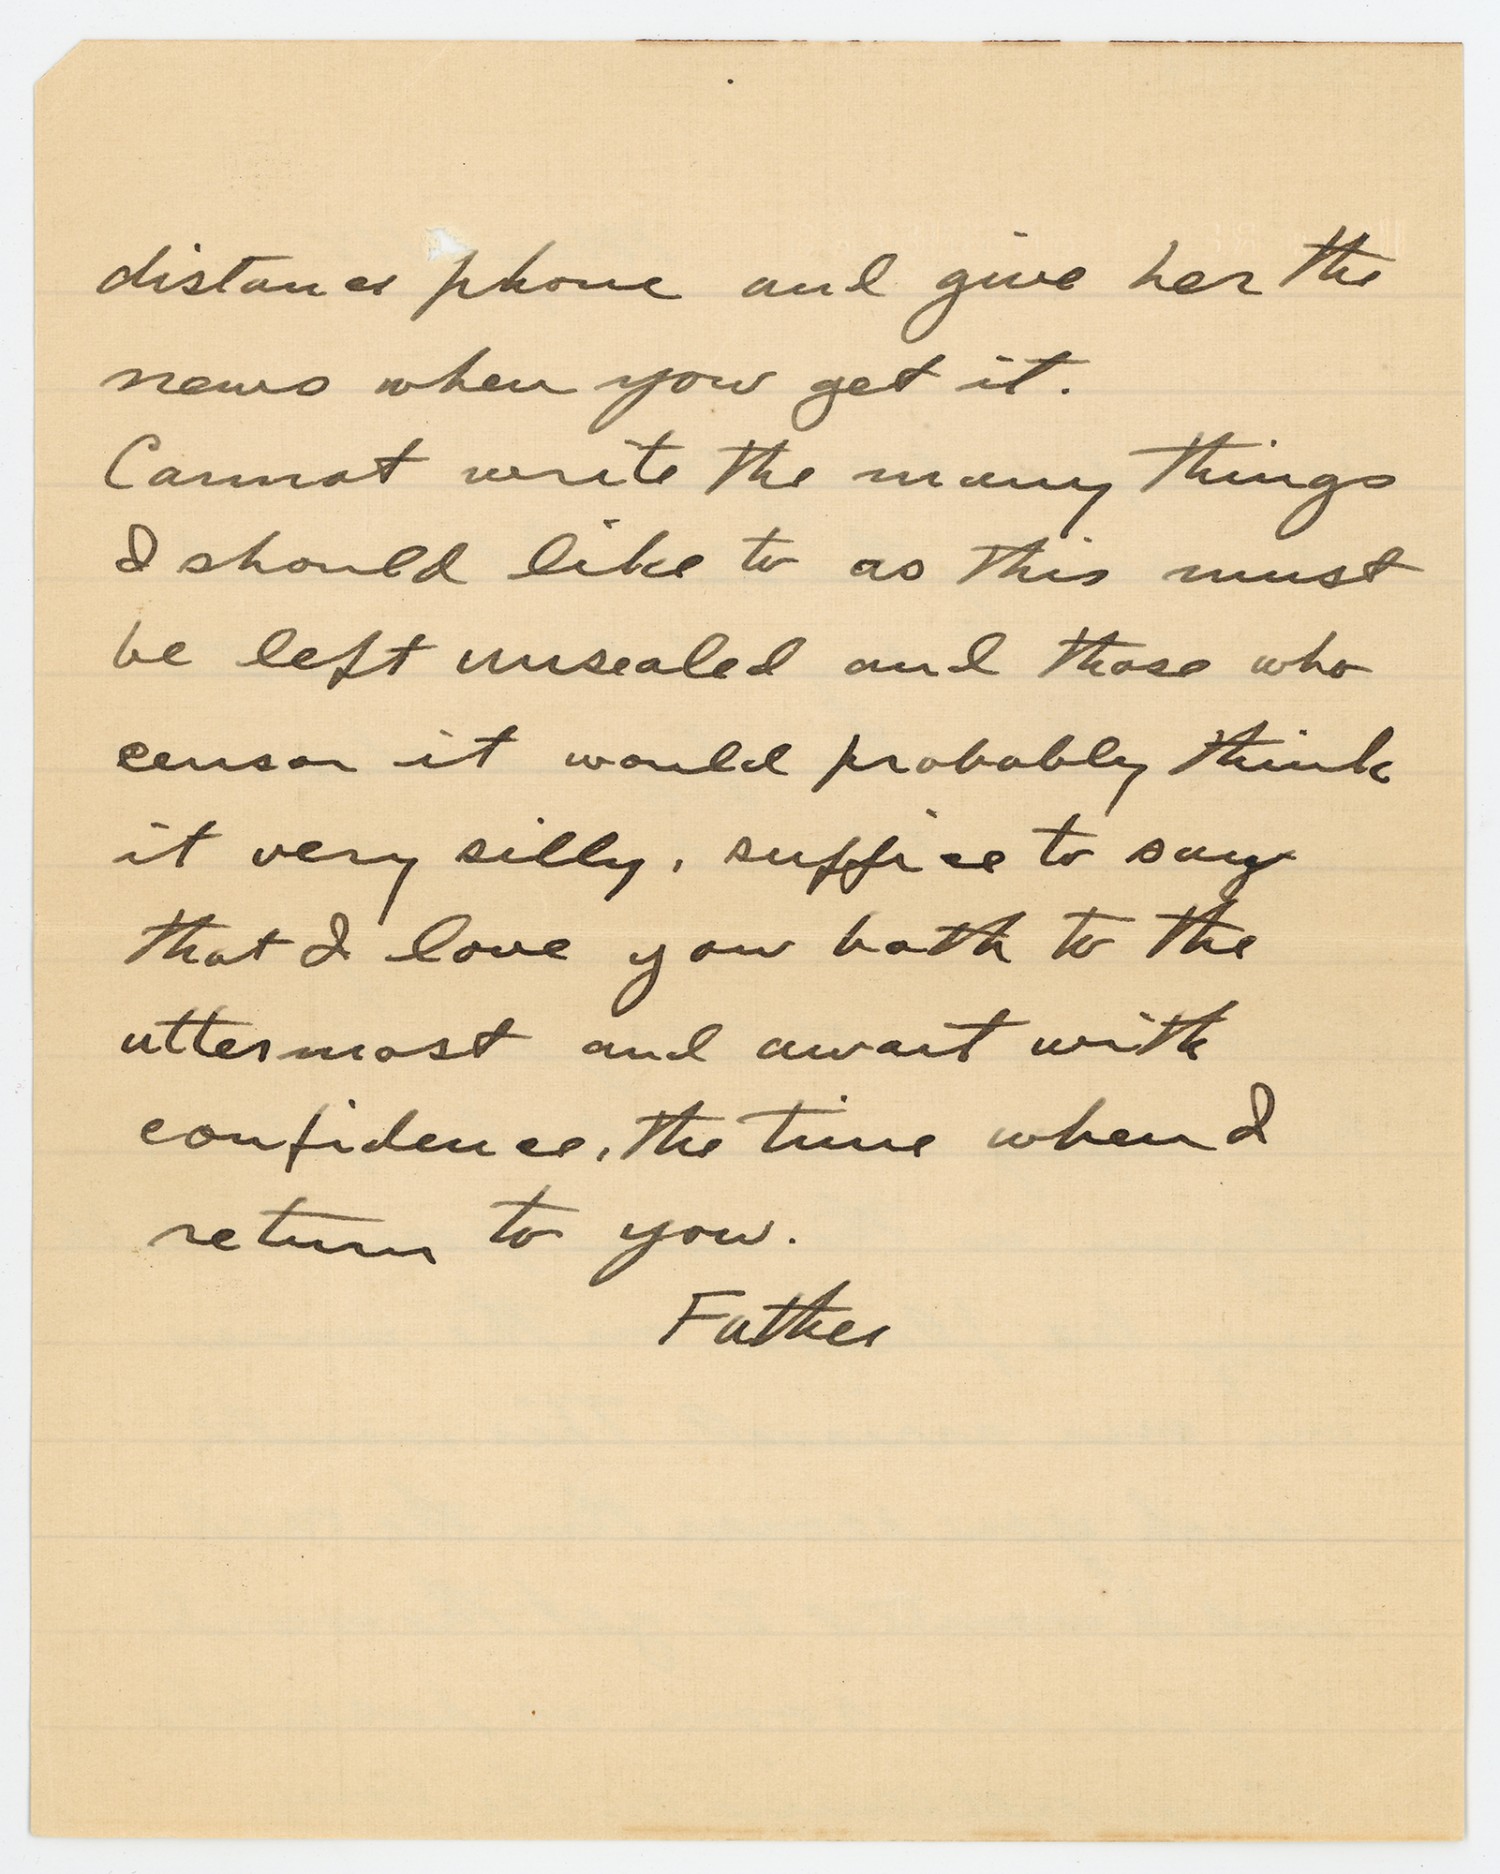 distance phone and give her the
news when you get it.
Cannot write the many things
I should like to as this must
be left unsealed and those who
censor it would probably think
it very silly, suffice to say
that I love you both to the
uttermost and await with
confidence, the time when I
return to you.
Father